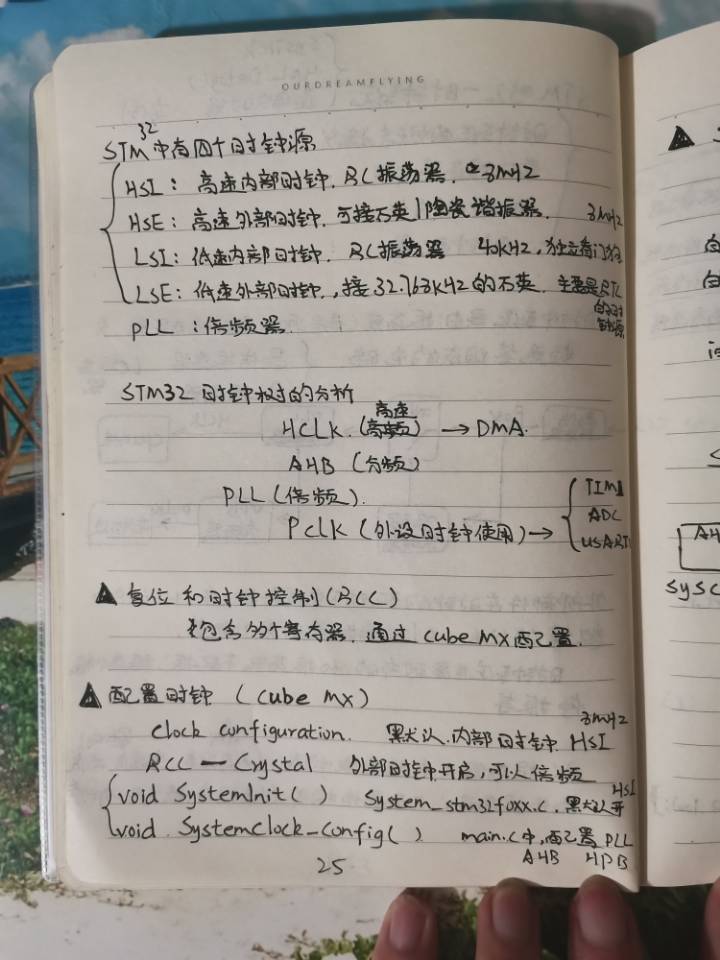 OURDREAMFLYING
STM32中有四个时钟源
HSI：高速内部时钟，RC振荡器，8MHZ
HSE：高速外部时钟，可接石英/陶瓷谐振器， 8MHZ
LSI：低速内部时钟， RC振荡器 40KHZ，独立看门狗
LSE：低速外部时钟，接32.768KHZ的石英，主要是RTC
的时
钟源
PLL：倍频器.
STM32时钟树的分析
高速
HCLK.() → DMA.
AHB (分频)
PLL (倍频).
PCLK (外设时钟使用) →
TIM1
ADC
USART1
▲ 复位和时钟控制(RCC)
包含多个寄存器，通过Cube MX配置.
▲ 配置时钟 (Cube MX)
8MHZ
Clock Configuration. 默认.内部时钟 HSI
RCC — Crystal 外部时钟开启，可以倍频
HSI
void SystemInit( ) System_stm32f0xx.c. 默认开
void SystemClock_Config( ) main.c中，配置PLL
AHB APB
25
▲ S
白
白
AH
SYSC